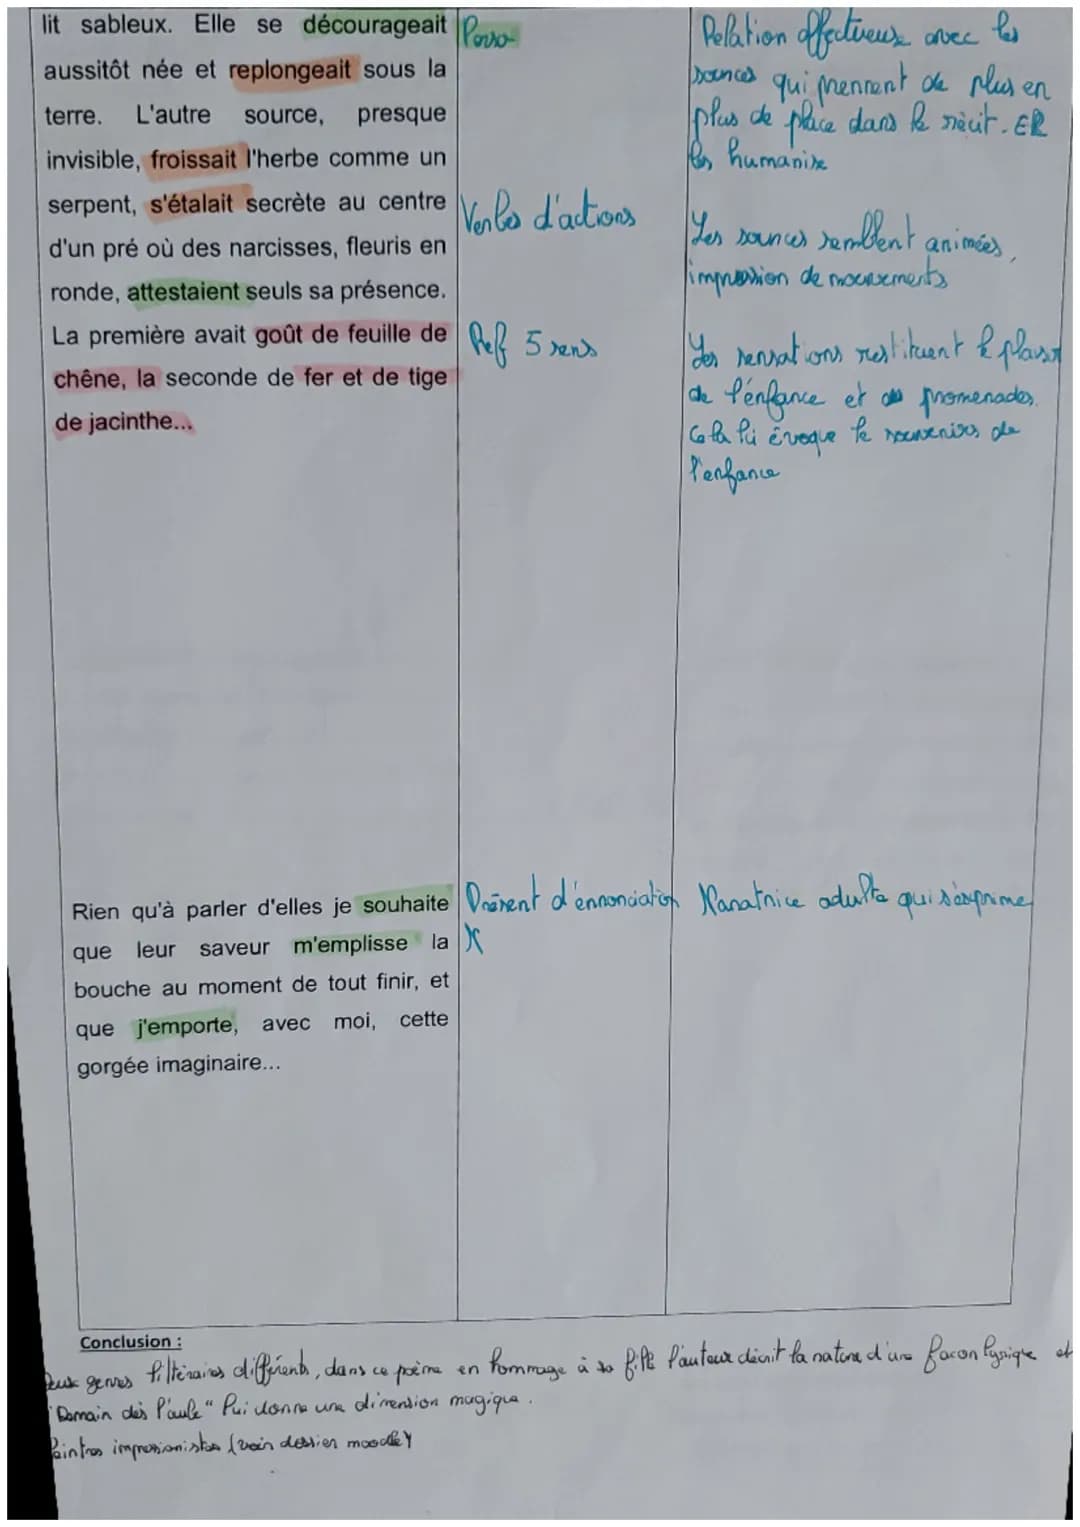 lit sableux. Elle se décourageait
aussitôt née et replongeait sous la
terre. L'autre source, presque
invisible, froissait l'herbe comme un
serpent, s'étalait secrète au centre
d'un pré où des narcisses, fleuris en
ronde, attestaient seuls sa présence.
La première avait goût de feuille de
chêne, la seconde de fer et de tige
de jacinthe...
Rien qu'à parler d'elles je souhaite
que leur saveur m'emplisse la
bouche au moment de tout finir, et
que j'emporte, avec moi, cette
gorgée imaginaire...
Perso
Verbes d'actions
Ref 5 sens
Présent d'énnonciation
Relation affectueuse avec les
sources qui prennent de plus en
plus de place dans le récit. Elle
les humanise
Les sources semblent animées,
impression de mouvements
Les sensations restituent le plaisir
de l'énfance et des promenades.
Cela lui évoque le souvenirs de
l'enfance
Narratrice adulte qui s'exprime
Conclusion :
Deux genres littéraires différents, dans ce poème en hommage à sa fille l'auteur décrit la nature d'une facon lyrique et
"Demain dès l'aube" lui donne une dimension magique.
Peintres impressionistes (voir dossier moodle)